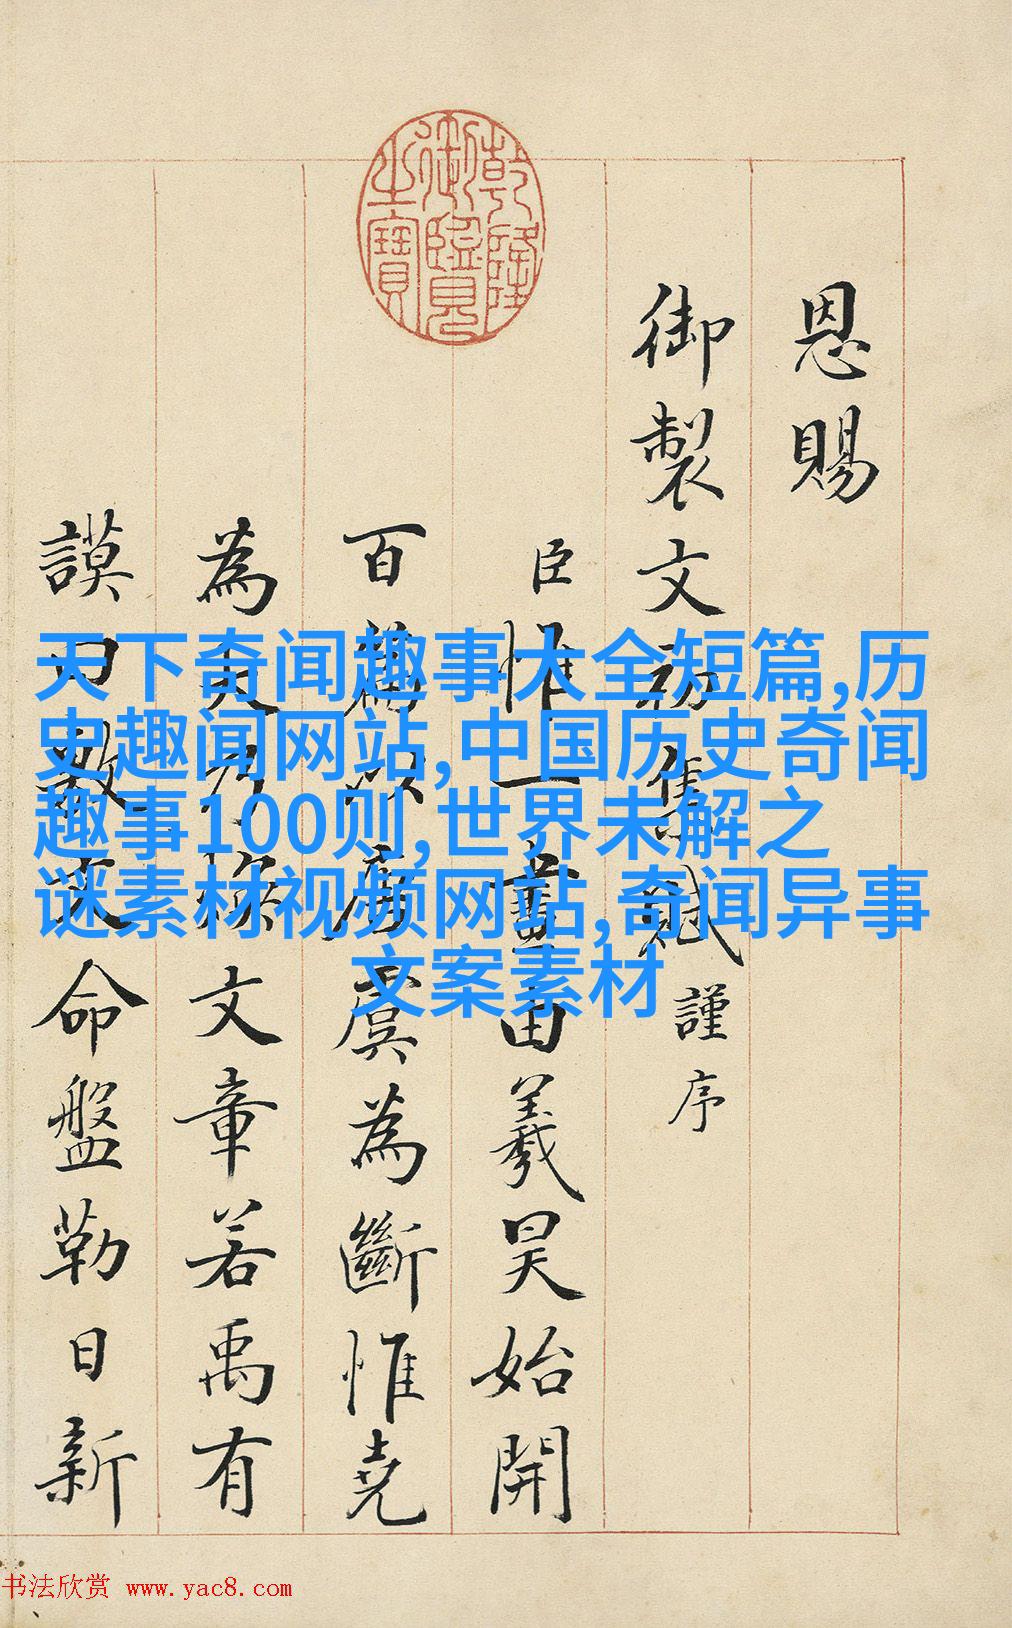 乾隆御覽之寶
恩賜
御製文初集賦謹序
臣惟一畫由羲昊始開
百篇以唐虞為斷惟堯
為大乃煥文章若禹有
謨曰敷文命盤勒日新
天下奇闻趣事大全短篇,历
史趣闻网站,中国历史奇闻
趣事100则,世界未解之
谜素材视频网站,奇闻异事
文案素材
书法欣赏 www.yac8.com